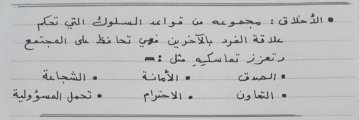 • الأخلاق : مجموعه من قواعد السلوك التي تحكم
علاقة الفرد بالآخرين فهي تحافظ على المجتمع
وتعزز تماسكه مثل :-
• الصدق • الأمانة • الشجاعة
• التعاون • الاحترام • تحمل المسؤولية